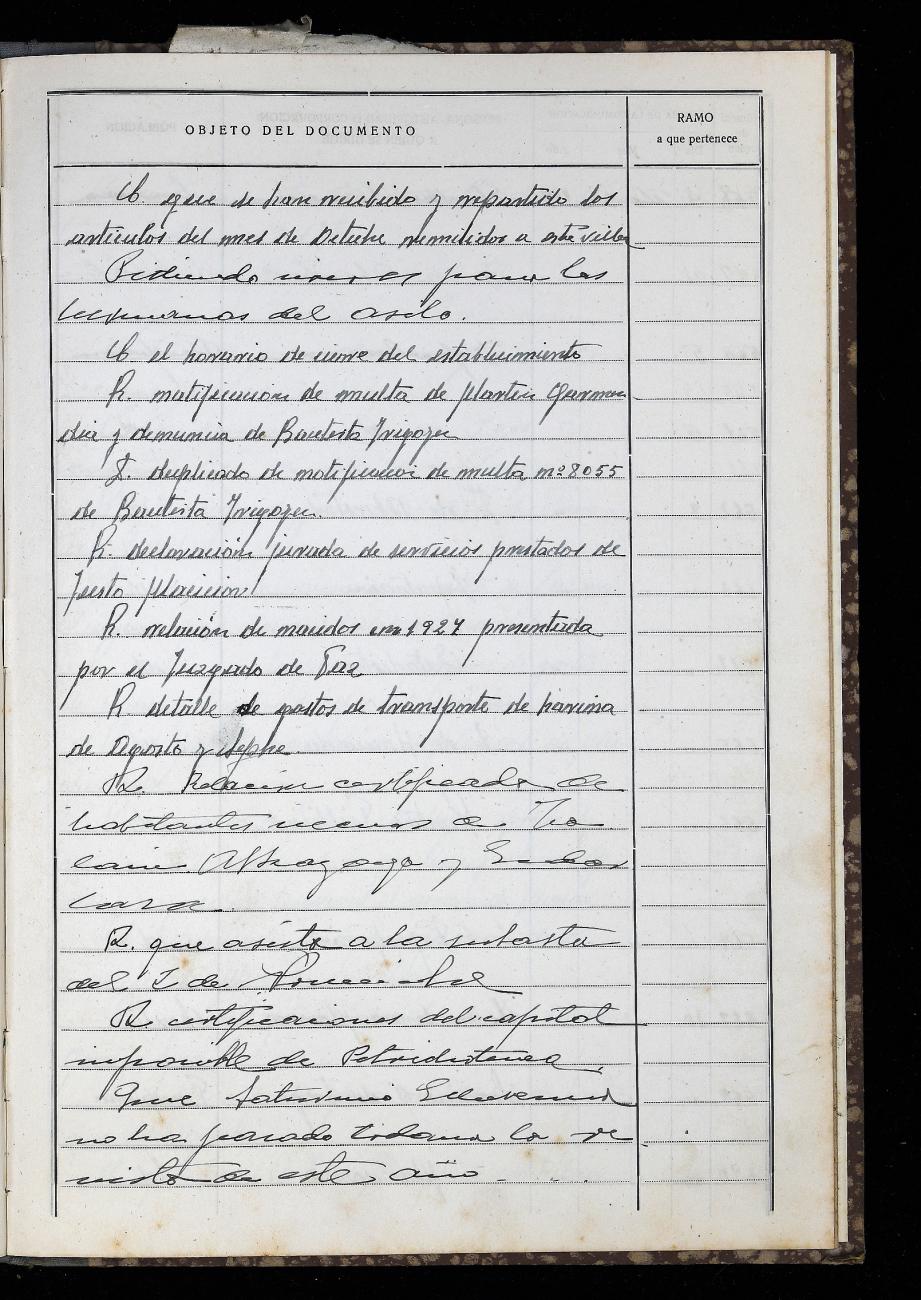 OBJETO DEL DOCUMENTO
RAMO
a que pertenece
C. que se han recibido y repartido los
articulos del mes de Octubre remitidos a esta villa
Pidiendo viveres para las
hermanas del asilo.
C. el horario de cierre del establecimiento
R. notificacion de multa de Martin Garmen
dia y denuncia de Bautista Irigoyen
D. duplicado de notificacion de multa nº 8055
de Bautista Irigoyen.
R. declaración jurada de servicios prestados de
Justo
R. relación de nacidos en 1924 presentada
por el Juzgado de Paz
R detalle de gastos de transporte de harina
de Agosto y Sepbre.
R. Relacion certificada de
habitantes de
y
R. que asista a la subasta
del I de
R certificaciones del capital
imponible de
Que Saturnino Echeverria
no ha pasado todavia la re
vista de este año